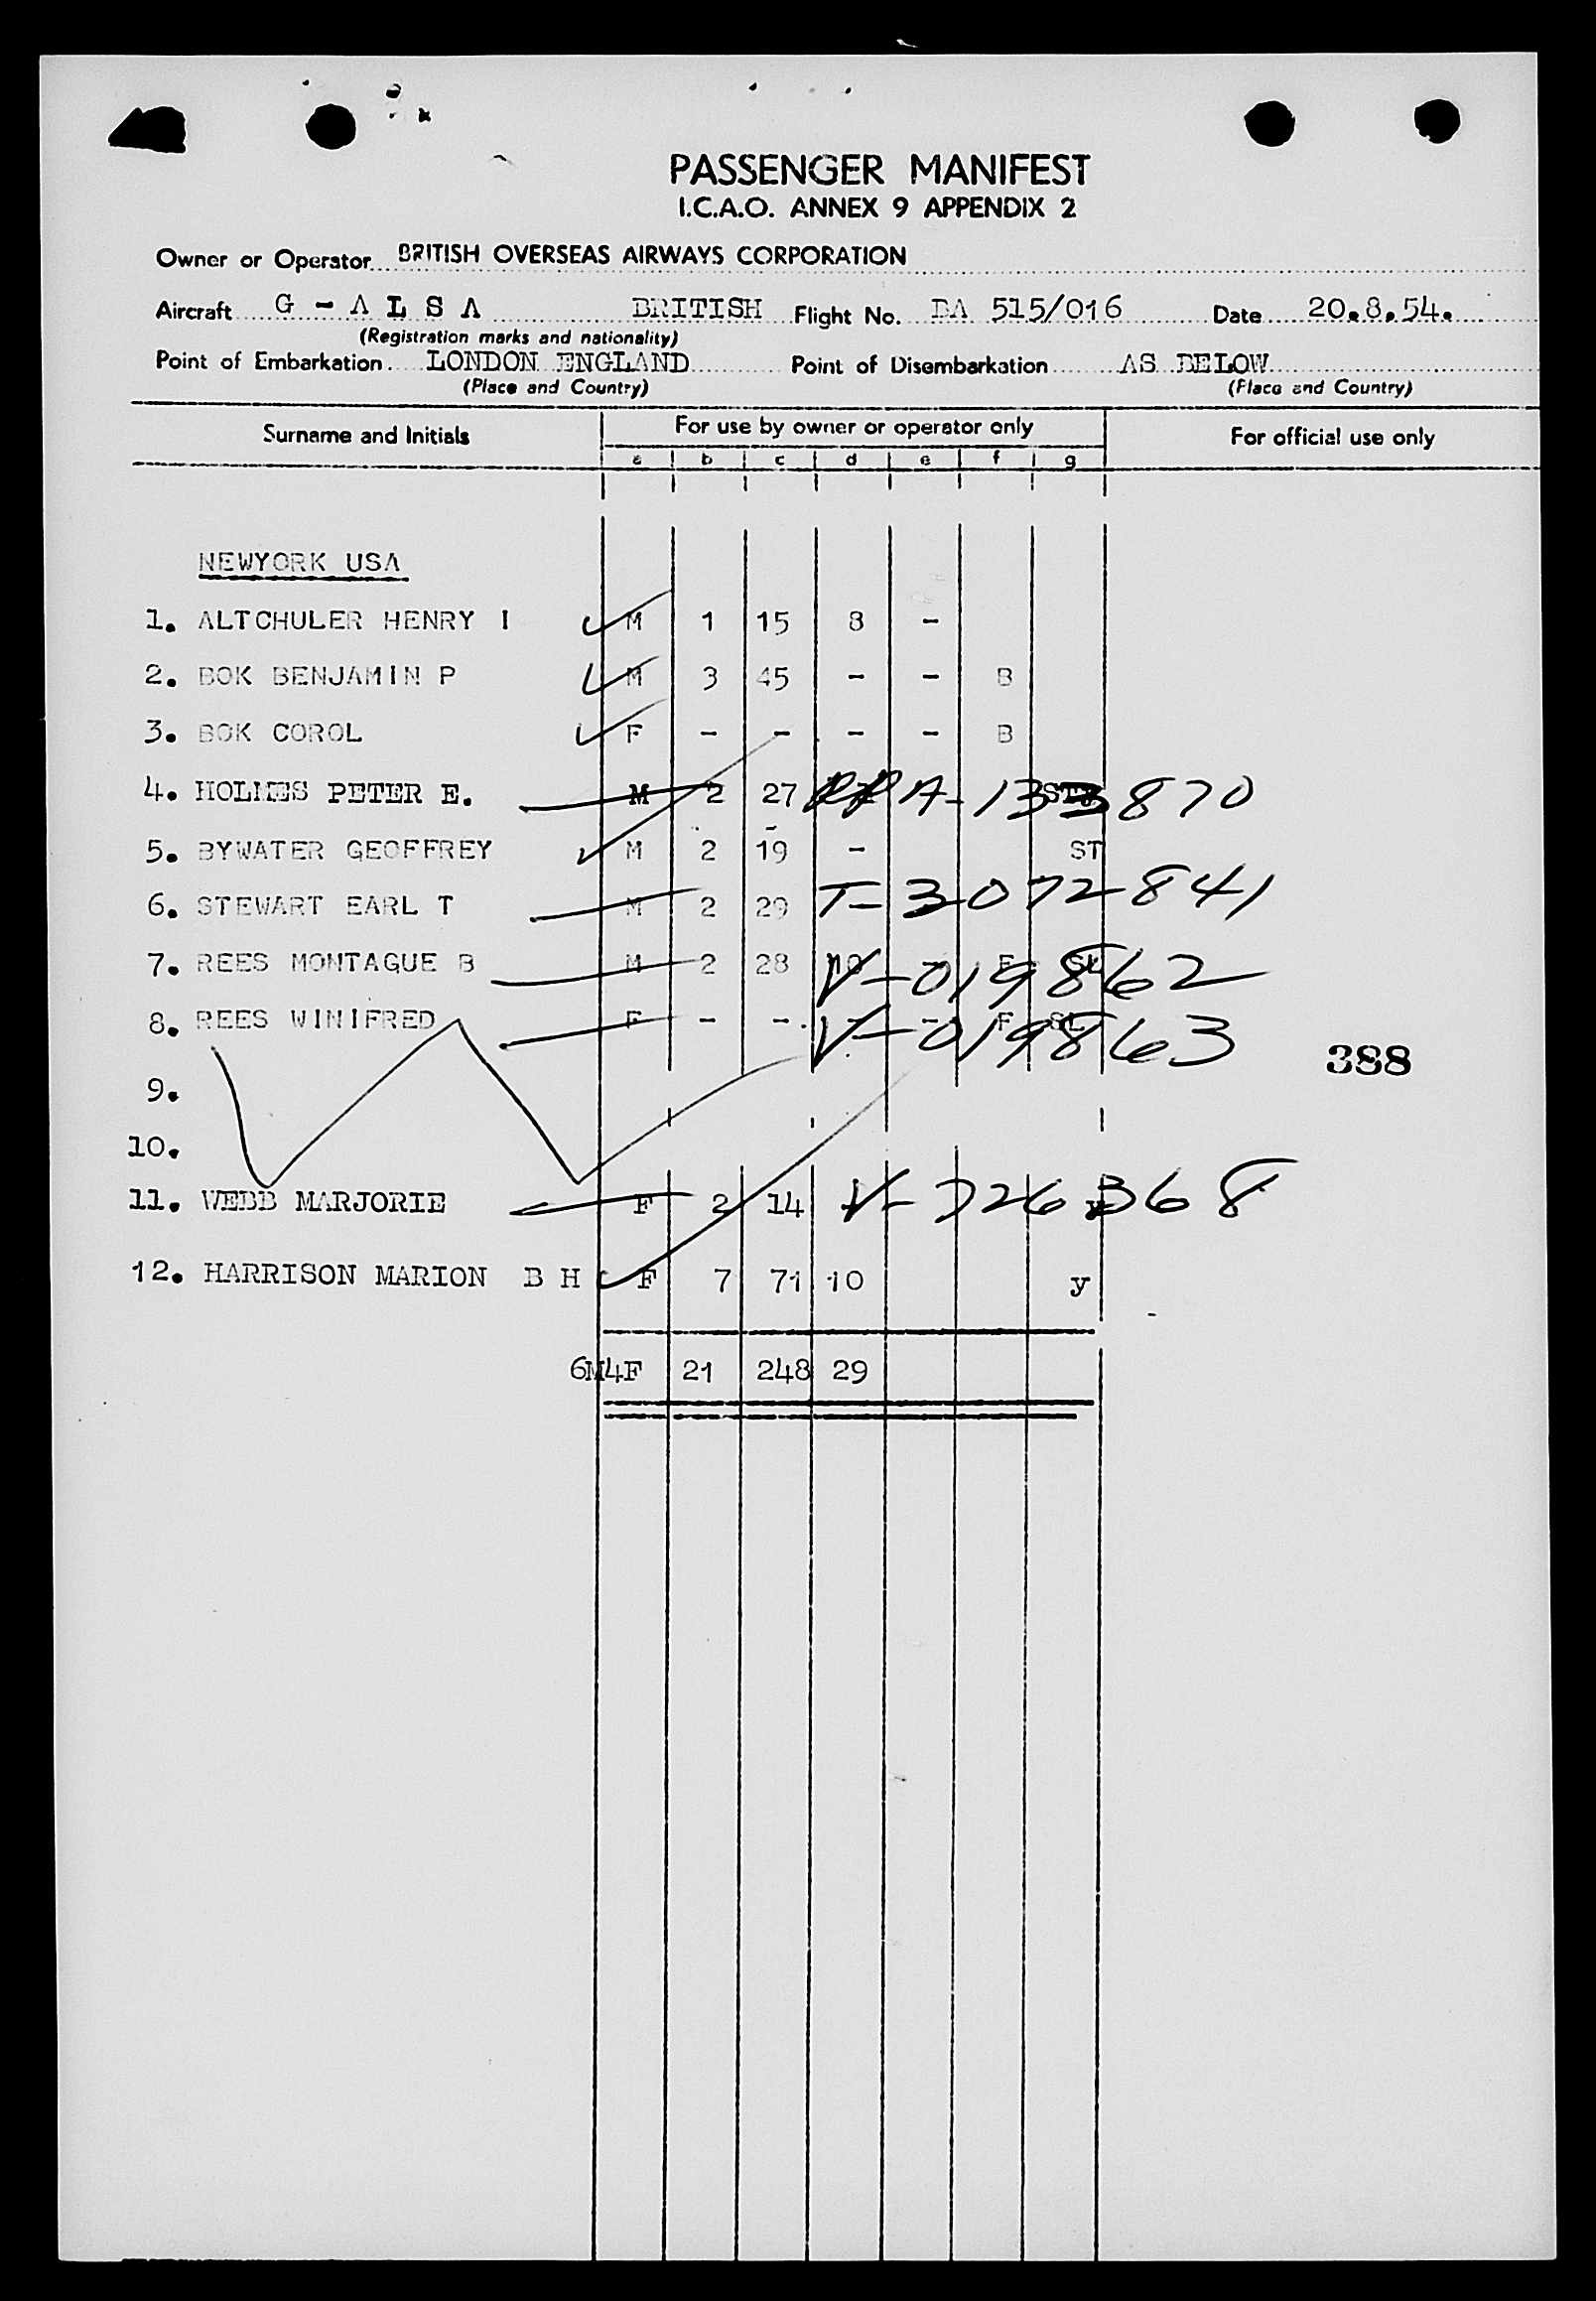 PASSENGER MANIFEST
I.C.A.O. ANNEX 9 APPENDIX 2
Owner or Operator BRITISH OVERSEAS AIRWAYS CORPORATION
Aircraft G - A L S A BRITISH Flight No. BA 515/016 Date 20.8.54.
(Registration marks and nationality)
Point of Embarkation LONDON ENGLAND Point of Disembarkation AS BELOW
(Place and Country) (Place and Country)
Surname and Initials For use by owner or operator only For official use only
a b c d e f g
NEWYORK USA
1. ALTCHULER HENRY I M 1 15 8 -
2. BOK BENJAMIN P M 3 45 - - B
3. BOK COROL F - - - - B
4. HOLMES PETER E. M 2 27 A-133870
5. BYWATER GEOFFREY M 2 19 - ST
6. STEWART EARL T M 2 29 T-3072841
7. REES MONTAGUE B M 2 28 10 - F SL V-019862
8. REES WINIFRED F - - - - F SL V-019863
388
9.
10.
11. WEBB MARJORIE F 2 14 V-726368
12. HARRISON MARION B H F 7 71 10 y
6M4F 21 248 29